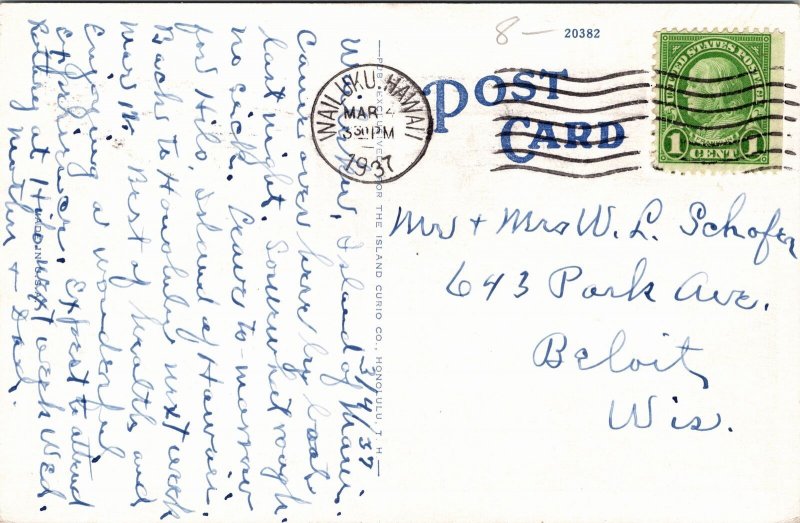 8-
20382
POST
CARD
WAILUKU. HAWAII
MAR 4
330PM
1937
UNITED STATES POSTAGE
1 CENT 1
3/4/37
Island of Maui.
Came over here by boat
last night. Somewhat rough.
no sick. Leave to-morrow
for Hilo, Island of Hawaii.
Back to Honolulu next week
Mar
Best of health and
Enjoying a wonderful
experience. Expect to attend
Rotary at Hilo next week Wed.
Mother + Dad.
FOR THE ISLAND CURIO CO., HONOLULU, T. H.
Mr + Mrs W. L. Schofer
643 Park Ave.
Beloit,
Wis.